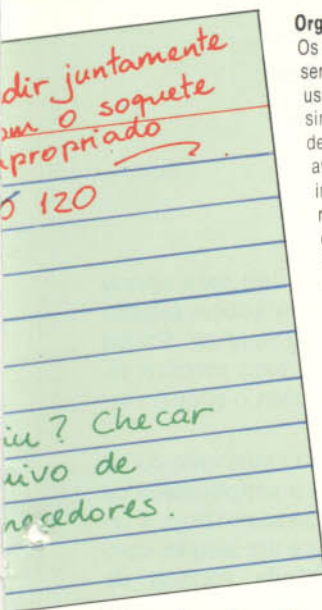 dir juntamente
om o soquete
propriado
120
iu? Checar
uivo de
necedores.
Org
Os
ser
us
sir
de
av
in
r